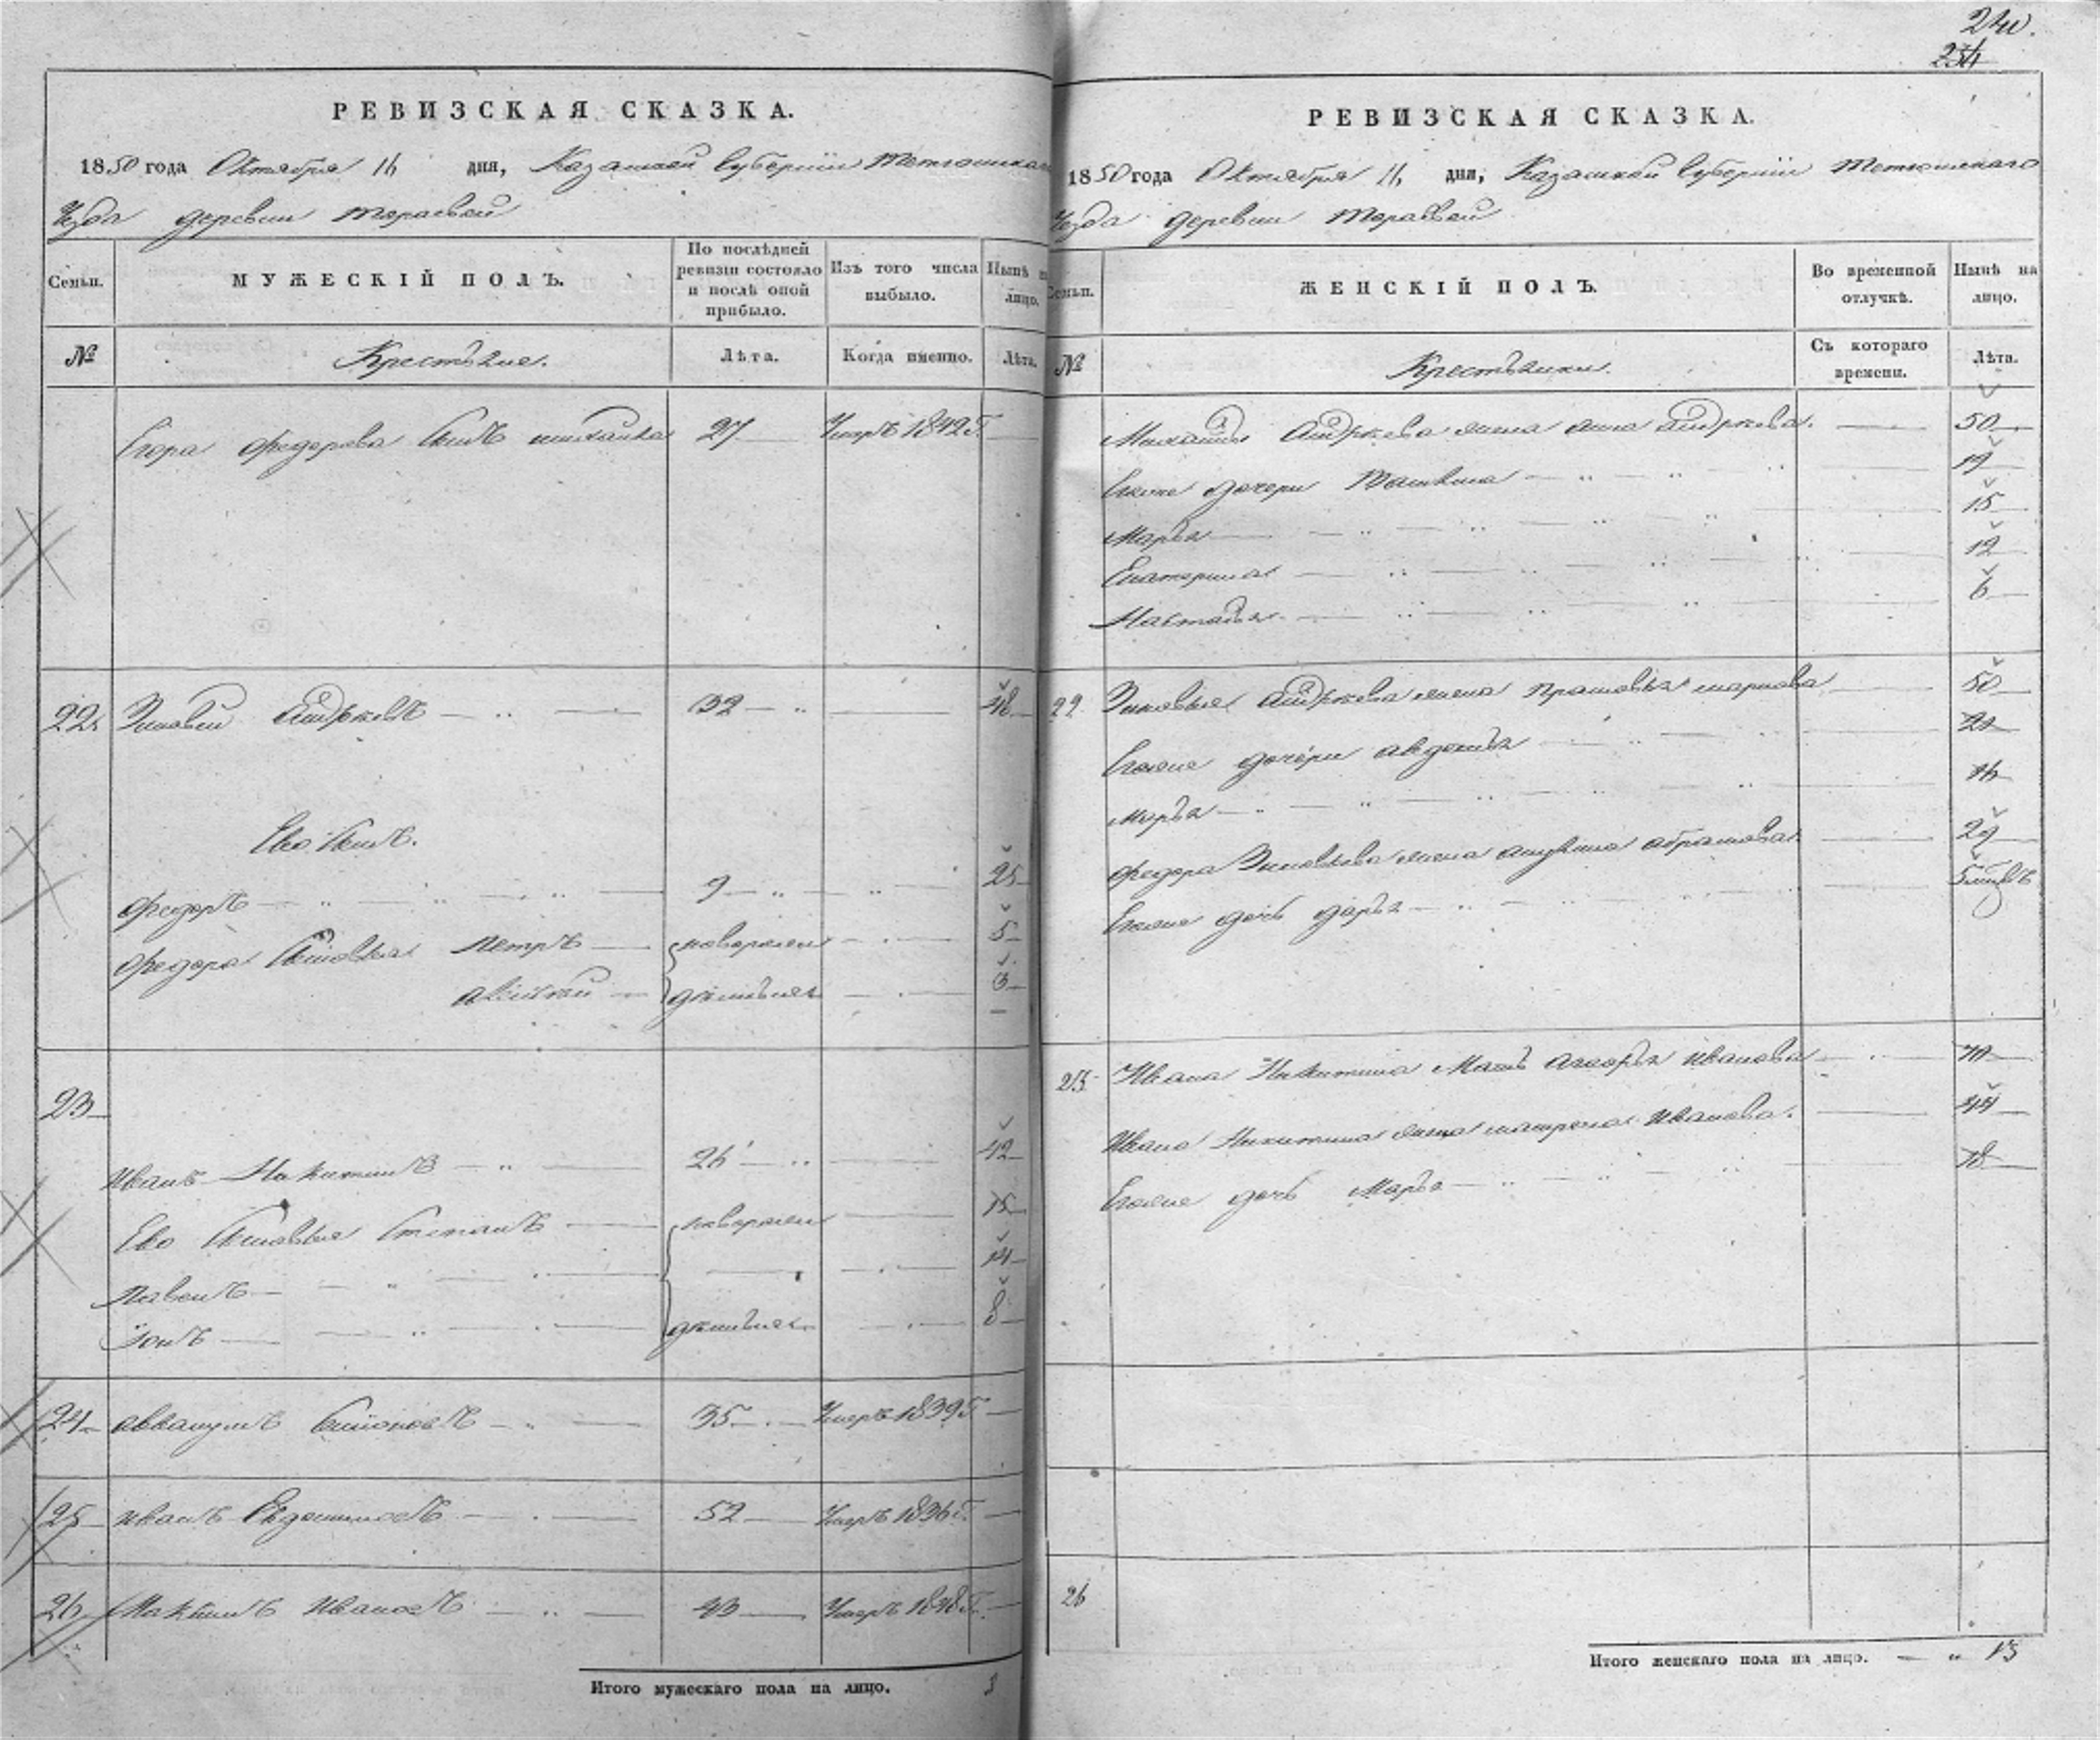 240.
234
РЕВИЗСКАЯ СКАЗКА.
1850 года Октября 16 дня, Казанской Губернiи Тетюшскаго
Уѣзда деревни
Семьи.
МУЖЕСКІЙ ПОЛЪ.
По послѣдней ревизіи состояло и послѣ оной прибыло.
Изъ того числа выбыло.
Нынѣ на лицо.
№
Крестьяне.
Лѣта.
Когда именно.
Лѣта.
Егора Федорова сынъ 27 Умеръ 1842 Г.
22 Зиновей Андрѣевъ 32 48
Ево сынъ.
Федоръ 9 25
Федора сыновья Петръ новорожден 5
Алексѣй 3
23
Иванъ Никитинъ 26 42
Ево сыновья Степанъ новорожден 15
Павелъ 14
Iонъ 8
24 Аввакумъ 35 Умеръ 1839 Г.
25 Иванъ Евдокимовъ 52 Умеръ 1836 Г.
26 Максимъ Ивановъ 43 Умеръ 1848 Г.
Итого мужескаго пола на лицо.
РЕВИЗСКАЯ СКАЗКА.
1850 года Октября 16 дня, Казанской Губернiи Тетюшскаго
Уѣзда деревни
Семьи.
ЖЕНСКІЙ ПОЛЪ.
Во временной отлучкѣ.
Нынѣ на лицо.
№
Крестьянки.
Съ котораго времени.
Лѣта.
Михайлы Андрѣева жена Анна Андрѣева. 50
дочери 19
Марья 15
Екатерина 12
Настасья 6
22 Зиновья Андрѣева жена Прасковья Маркова 50
дочери Авдотья
Марья 16
Федора Зиновьева жена Акулина Абрамова 29
дочь Дарья
23 Ивана Никитина мать Иванова 70
Ивана Никитина жена Матрена Иванова. 44
дочь Марья 18
26
Итого женскаго пола на лицо. 13